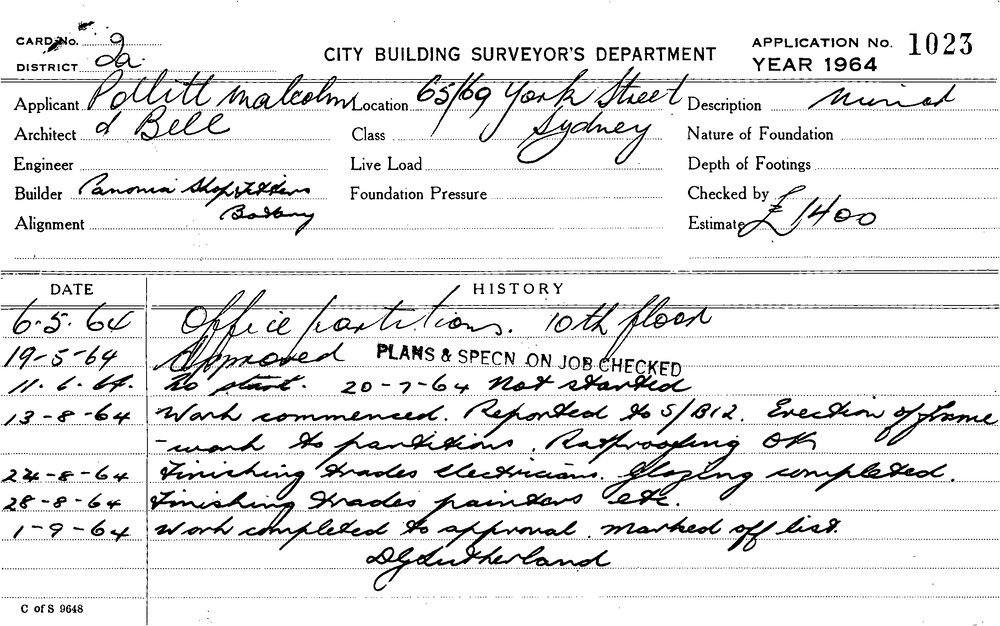 CARD No. 2
DISTRICT 2a.
CITY BUILDING SURVEYOR'S DEPARTMENT
APPLICATION No. 1023
YEAR 1964
Applicant Pollitt Malcolm Location 65/69 York Street Description Minor
Architect & Bell Class Sydney Nature of Foundation
Engineer Live Load Depth of Footings
Builder Panonia Shopfitters Foundation Pressure Checked by
Botany
Alignment Estimate £1400
DATE HISTORY
6-5-64 Office partitions. 10th floor
19-5-64 Approved PLANS & SPECN ON JOB CHECKED
11.6.64. To start. 20-7-64 Not started
13-8-64 Work commenced. Reported to S/B12. Erection of frame
-work to partitions. Ratproofing OK
24-8-64 Finishing trades electricians. Glazing completed.
28-8-64 Finishing trades painters etc.
1-9-64 Work completed to approval. Marked off list.
DGSutherland
C of S 9648